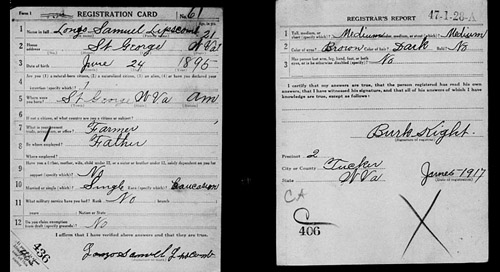 Form 1
REGISTRATION CARD No. 61
1 Name in full Longo Samuel Lipscomb 21
2 Home address St George W Va
3 Date of birth June 24 1895
4 Are you (1) a natural-born citizen, (2) a naturalized citizen, (3) an alien, (4) or have you declared your intention
5 Where were you born? St George W Va Am
6 If not a citizen, of what country are you a citizen or subject?
7 What is your present trade, occupation, or office? Farmer
8 By whom employed? Father
Where employed?
9 Have you a father, mother, wife, child under 12, or a sister or brother under 12, solely dependent on you for
support? No
10 Married or single (which)? Single Race (specify which)? Caucasian
11 What military service have you had? Rank No branch
years Nation or State
12 Do you claim exemption from draft (specify grounds)? No
I affirm that I have verified above answers and that they are true.
Longo Samuel Lipscomb
436
REGISTRAR'S REPORT 47-1-28-A
1 Tall, medium, or short (specify which)? Medium Slender, medium, or stout (which)? Medium
2 Color of eyes? Brown Color of hair? Dark Bald? No
3 Has person lost arm, leg, hand, foot, or both eyes, or is he otherwise disabled (specify)? No
I certify that my answers are true, that the person registered has read his own
answers, that I have witnessed his signature, and that all of his answers of which I have
knowledge are true, except as follows:
Burk Hight.
(Signature of registrar)
Precinct 2
City or County Tucker
State W Va June 5 - 1917
CA
C
406
X